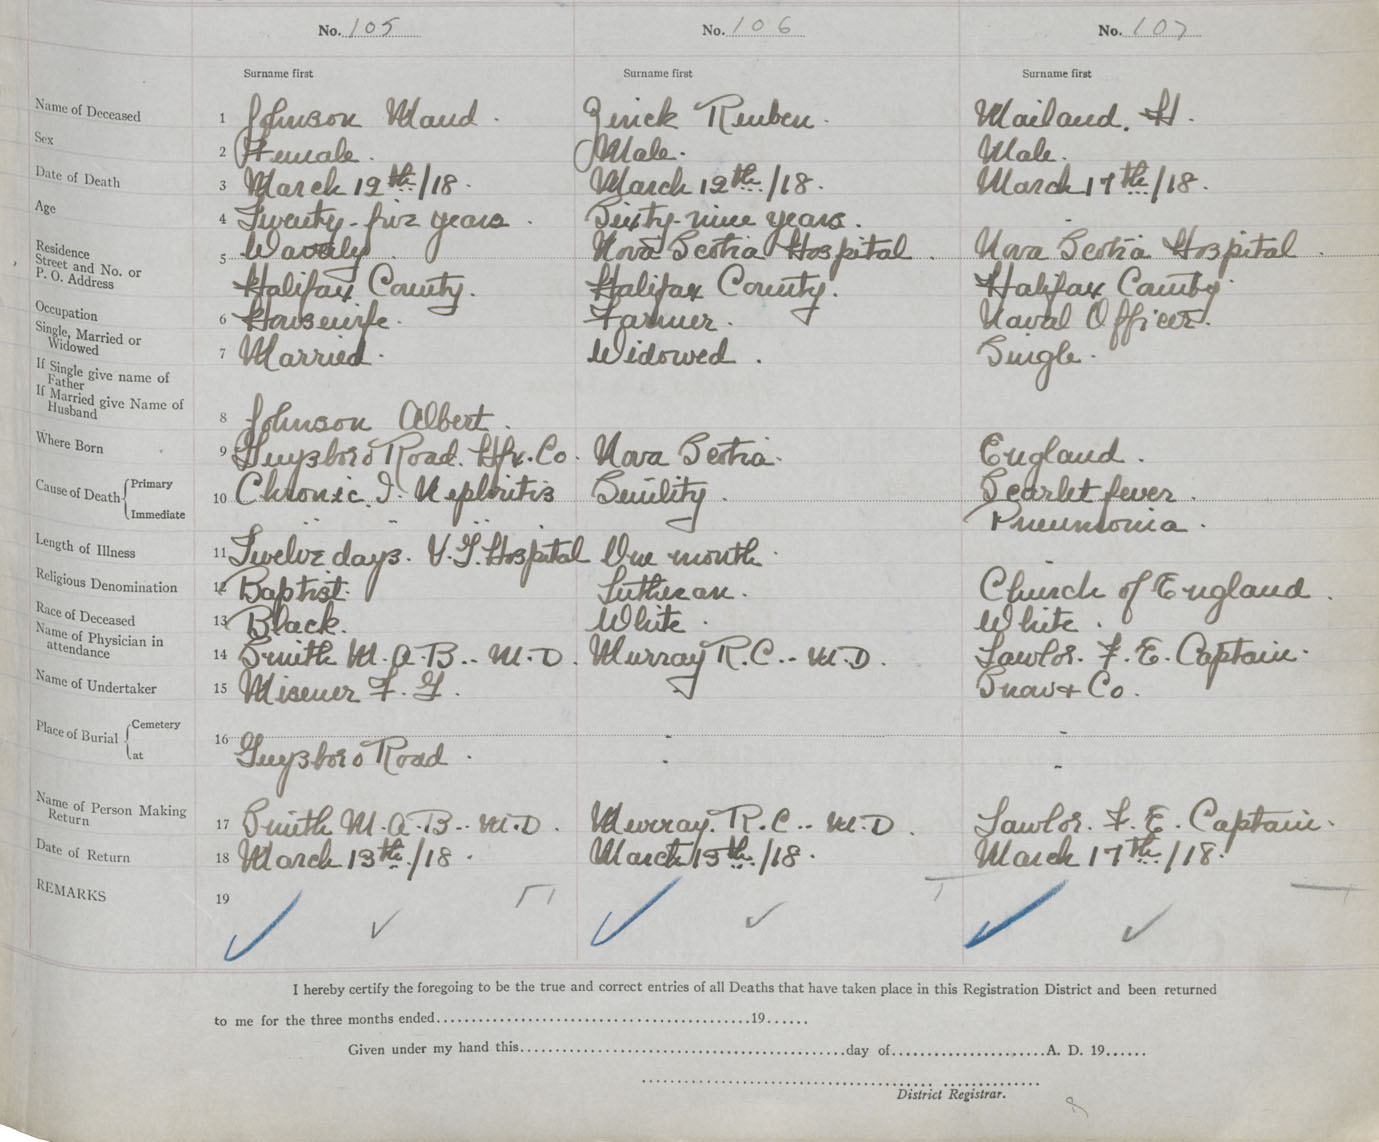 No. 105 No. 106 No. 107
Surname first Surname first Surname first
Name of Deceased 1 Johnson Maud. Zinick Reuben. Mailand. H.
Sex 2 Female. Male. Male.
Date of Death 3 March 12th/18. March 12th/18. March 17th/18.
Age 4 Twenty-five years. Sixty-nine years. -
Residence Street and No. or P. O. Address 5 Waverly Nova Scotia Hospital. Nova Scotia Hospital.
Halifax County. Halifax County. Halifax County.
Occupation 6 Housewife. Farmer. Naval Officer.
Single, Married or Widowed 7 Married. Widowed. Single.
If Single give name of Father
If Married give Name of Husband 8 Johnson Albert.
Where Born 9 Guysboro Road. Hfx. Co. Nova Scotia. England.
Cause of Death { Primary 10 Chronic I. Nephritis Senility. Scarlet fever.
Immediate " - " Pneumonia.
Length of Illness 11 Twelve days. V.G. Hospital One month.
Religious Denomination 12 Baptist. Lutheran. Church of England.
Race of Deceased 13 Black. White. White.
Name of Physician in attendance 14 Smith M.A.B.. M.D. Murray R.C.. M.D. Lawlor. F. E. Captain.
Name of Undertaker 15 Misener F. G. Snow & Co.
Place of Burial { Cemetery 16 - -
at Guysboro Road. - -
Name of Person Making Return 17 Smith M.A.B.. M.D. Murray. R.C.. M.D. Lawlor. F. E. Captain.
Date of Return 18 March 13th/18. March 13th/18. March 17th/18.
REMARKS 19
I hereby certify the foregoing to be the true and correct entries of all Deaths that have taken place in this Registration District and been returned
to me for the three months ended........................................19......
Given under my hand this........................................day of....................A. D. 19......
District Registrar.